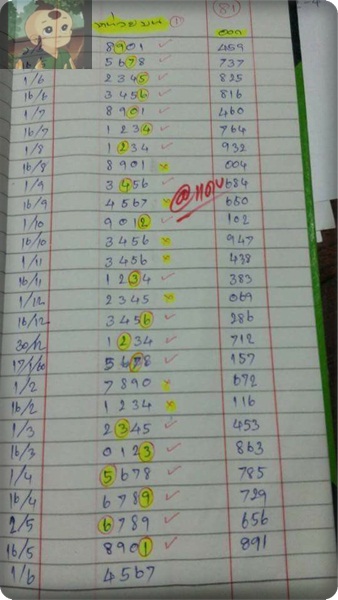 ① 81
8901 459
5678 737
1/6 2345 825
16/6 3456 816
1/7 8901 460
16/7 1234 764
1/8 1234 932
16/8 8901 × 004
1/9 3456 684
16/9 4567 × 650
1/10 9012 102
16/10 3456 × 947
1/11 3456 × 438
16/11 1234 383
1/12 2345 × 069
16/12 3456 286
30/12 1234 712
17/1/60 5678 157
1/2 7890 × 672
16/2 1234 × 116
1/3 2345 453
16/3 0123 863
1/4 5678 785
16/4 6789 729
2/5 6789 656
16/5 8901 891
1/6 4567